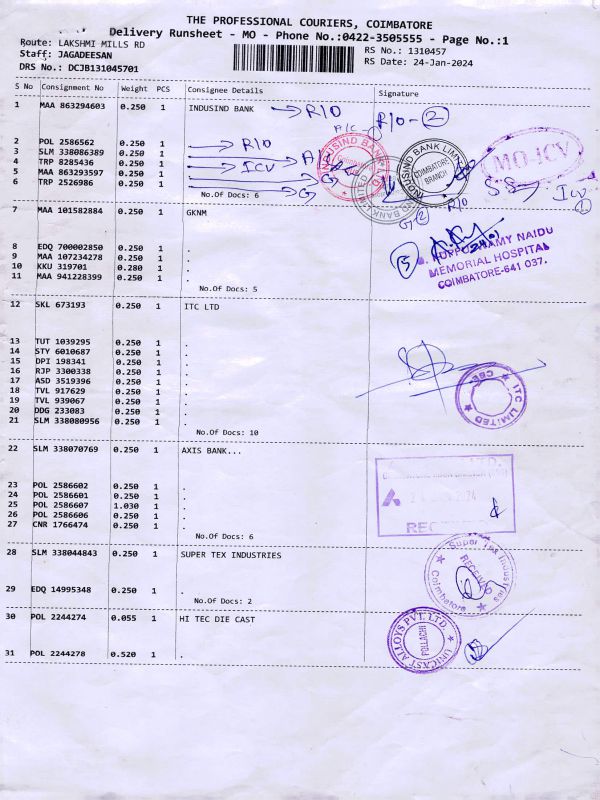 THE PROFESSIONAL COURIERS, COIMBATORE
Delivery Runsheet - MO - Phone No.:0422-3505555 - Page No.:1
Route: LAKSHMI MILLS RD
RS No.: 1310457
Staff: JAGADEESAN
RS Date: 24-Jan-2024
DRS No.: DCJB131045701
S No Consignment No Weight PCS Consignee Details Signature
1 MAA 863294603 0.250 1 INDUSIND BANK → R/O R/O - 2
2 POL 2586562 0.250 1 R/O
3 SLM 338086389 0.250 1
4 TRP 8285436 0.250 1 ICV
5 MAA 863293597 0.250 1 G
6 TRP 2526986 0.250 1 G
No.Of Docs: 6
INDUSIND BANK
INDUSIND BANK LIMITED
COIMBATORE BRANCH
BANK LIMITED
MO-ICV
ICV 1
G 2 R/O
7 MAA 101582884 0.250 1 GKNM
8 EDQ 700002850 0.250 1 .
9 MAA 107234278 0.250 1 .
10 KKU 319701 0.280 1 .
11 MAA 941228399 0.250 1 .
No.Of Docs: 5
5
KUPPUSWAMY NAIDU
MEMORIAL HOSPITAL
COIMBATORE-641 037.
12 SKL 673193 0.250 1 ITC LTD
13 TUT 1039295 0.250 1 .
14 STY 6010687 0.250 1 .
15 DPI 198341 0.250 1 .
16 RJP 3300338 0.250 1 .
17 ASD 3519396 0.250 1 .
18 TVL 917629 0.250 1 .
19 TVL 939067 0.250 1 .
20 DDG 233083 0.250 1 .
21 SLM 338080956 0.250 1 .
No.Of Docs: 10
ITC LIMITED
CBE
22 SLM 338070769 0.250 1 AXIS BANK...
23 POL 2586602 0.250 1 .
24 POL 2586601 0.250 1 .
25 POL 2586607 1.030 1 .
26 POL 2586606 0.250 1 .
27 CNR 1766474 0.250 1 .
No.Of Docs: 6
28 SLM 338044843 0.250 1 SUPER TEX INDUSTRIES
29 EDQ 14995348 0.250 1 .
No.Of Docs: 2
Super Tex Industries
RECEIVED
Coimbatore
30 POL 2244274 0.055 1 HI TEC DIE CAST
31 POL 2244278 0.520 1 .
UNICAST ALLOYS PVT. LTD.
POLLACHI